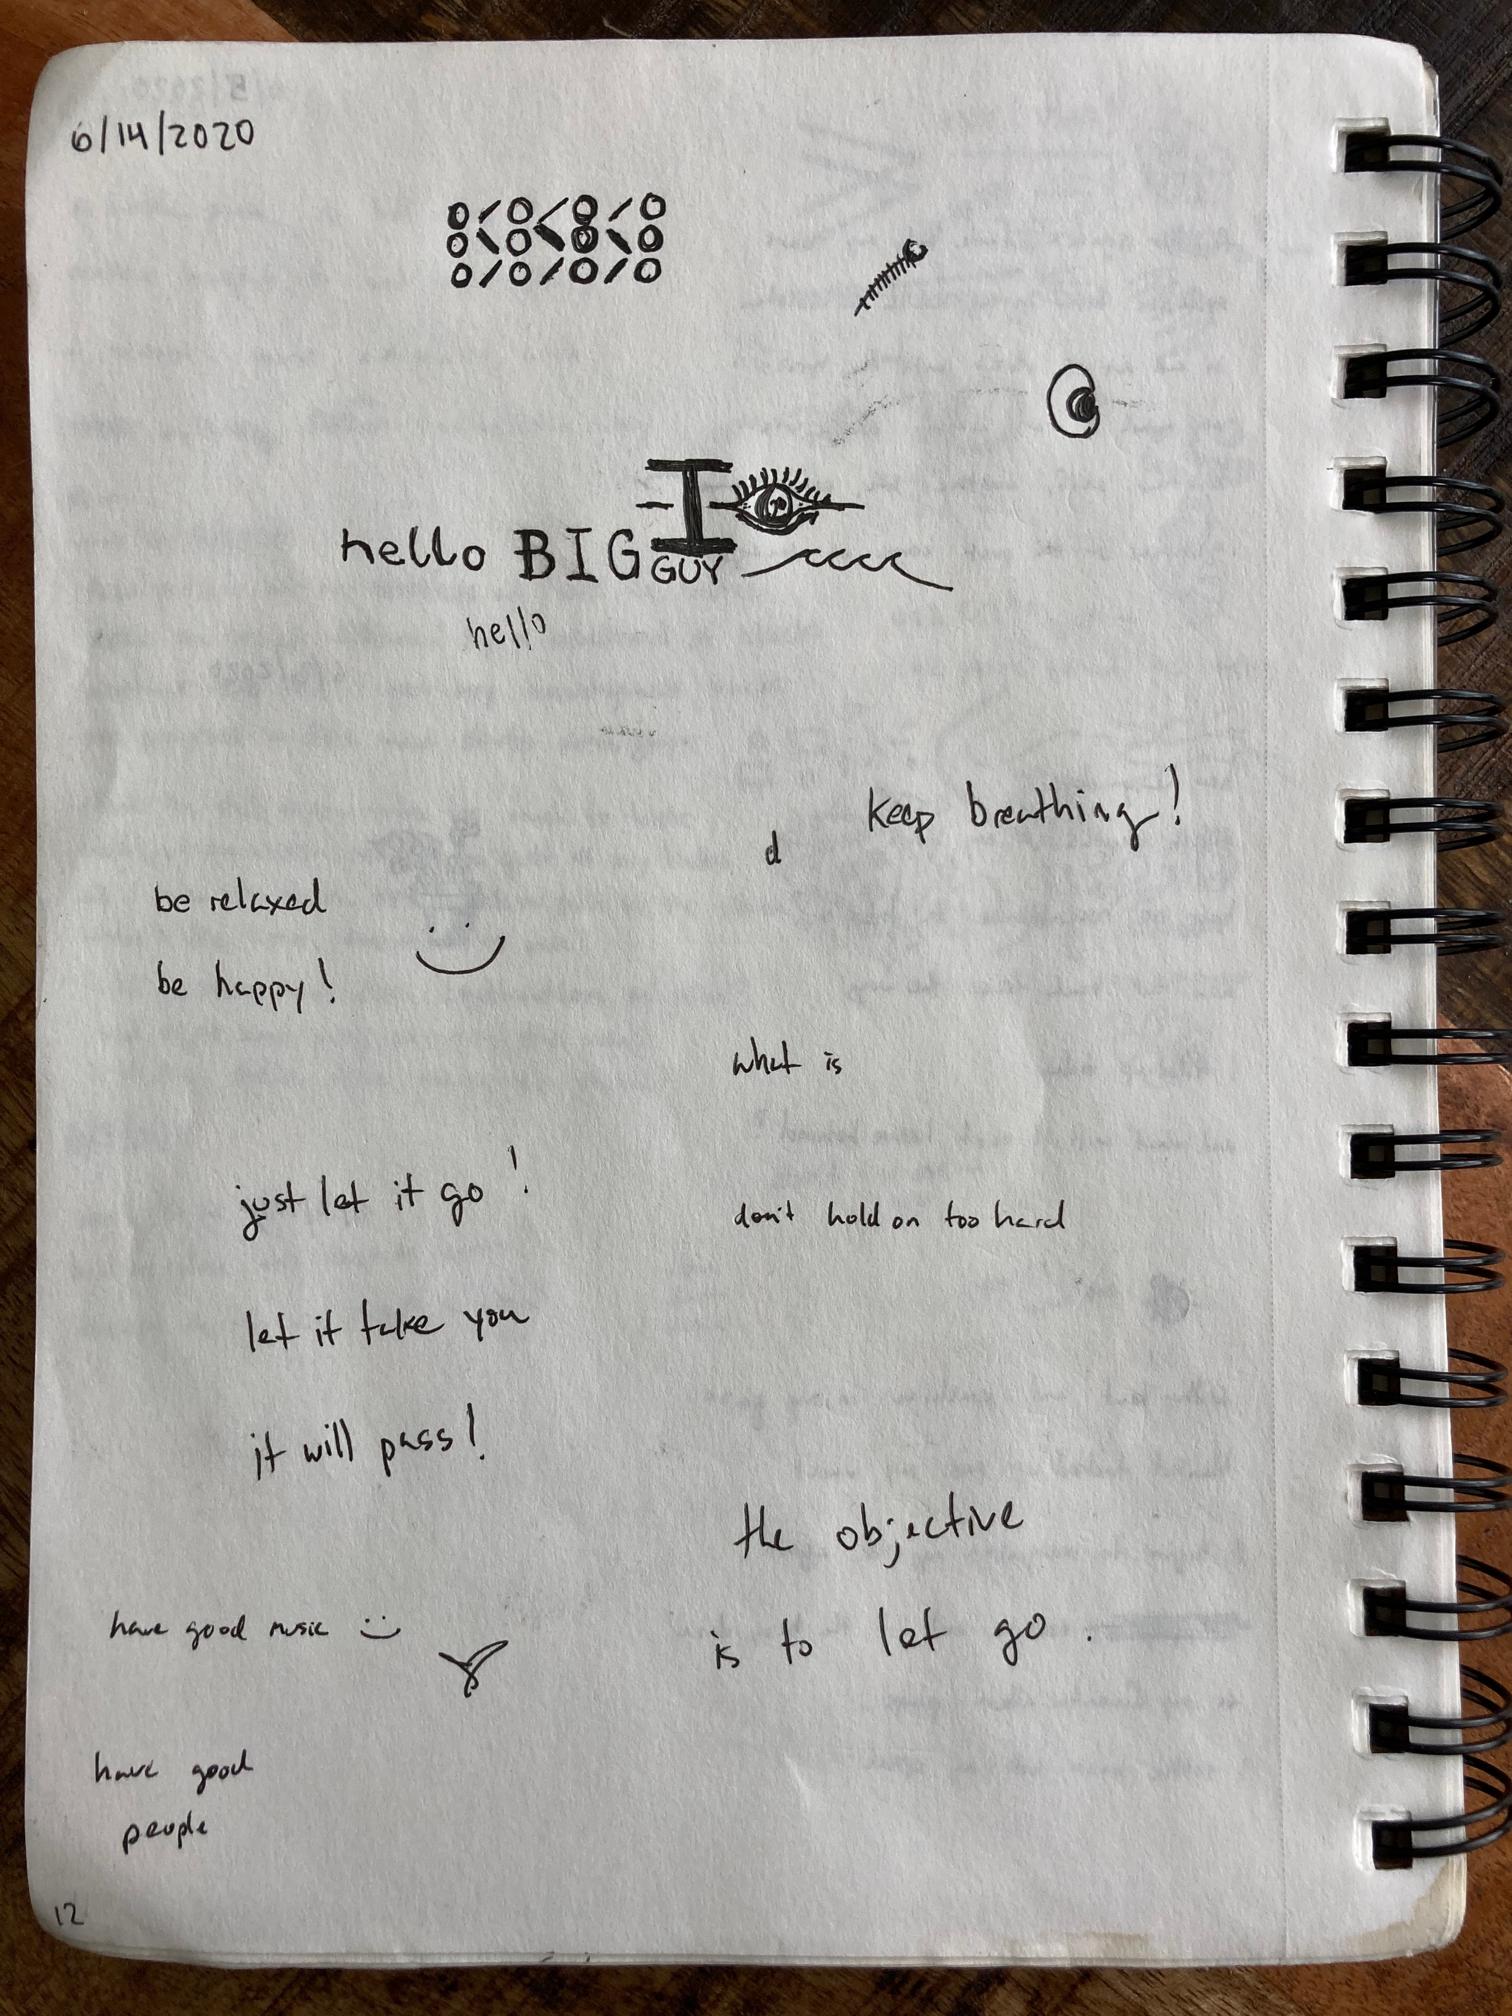 6/14/2020
I
hello BIG GUY
hello
keep breathing!
d
be relaxed
be happy!
what is
just let it go!
don't hold on too hard
let it take you
it will pass!
the objective
is to let go.
have good music :)
have good
people
12